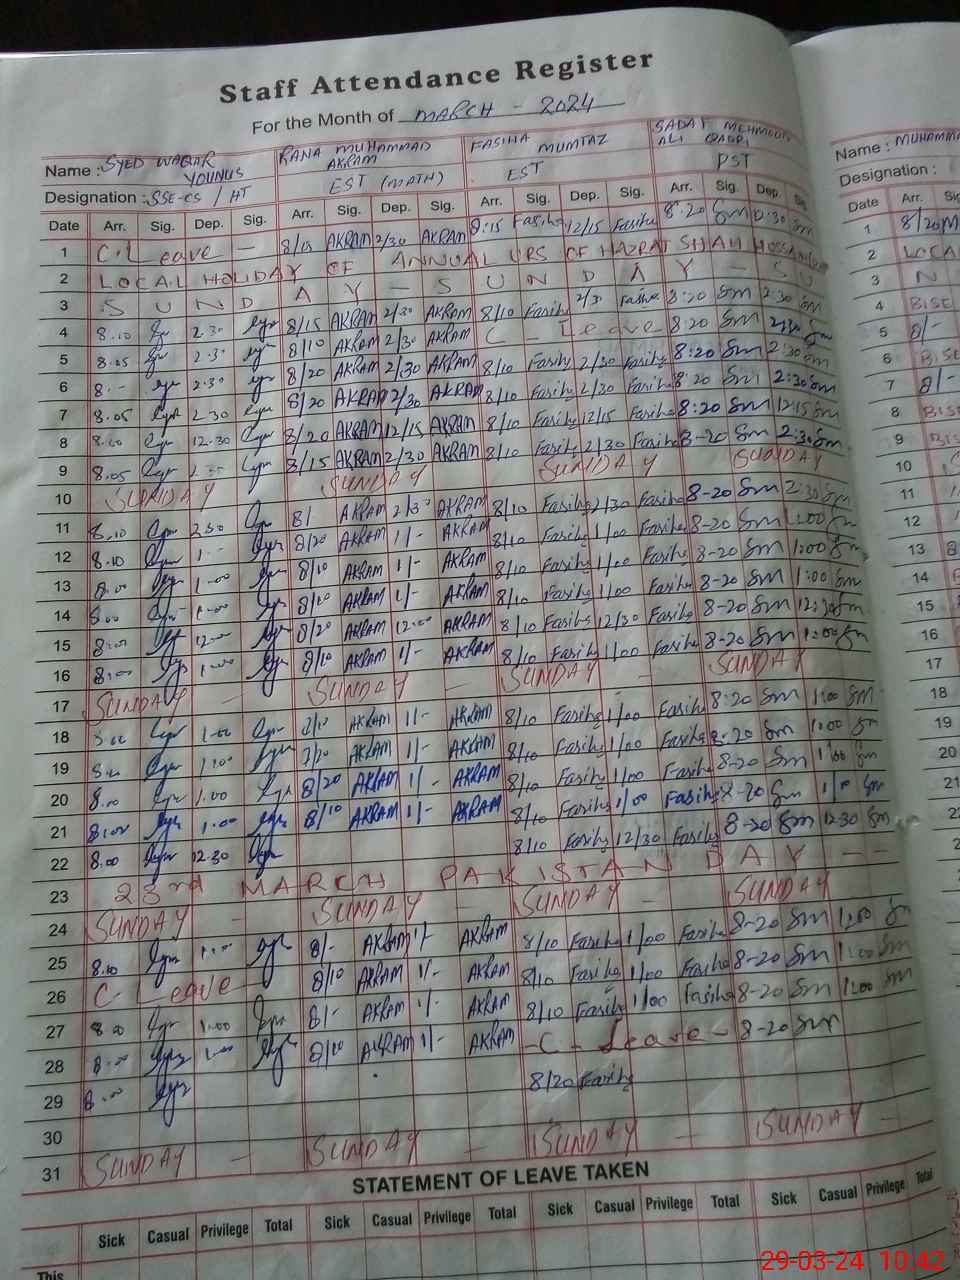 Staff Attendance Register
For the Month of MARCH - 2024
Name : SYED WAQAR YOUNUS RANA MUHAMMAD AKRAM FASIHA MUMTAZ SADAT MEHMOOD ALI QADRI Name : MUHAMMA
Designation : SSE-CS / HT EST (MATH) EST PST Designation :
Date Arr. Sig. Dep. Sig. Arr. Sig. Dep. Sig. Arr. Sig. Dep. Sig. Arr. Sig. Dep. Sig. Date Arr.
1 C. Leave - 8/15 AKRAM 2/30 AKRAM 8:15 Fasiha 12/15 Fasiha 8:20 Sm 12:30 Sm 1 8/20
2 LOCAL HOLIDAY OF ANNUAL URS OF HAZRAT SHAH HUSSAIN 2 LOCA
3 S U N D A Y - S U N D A Y - S U 3 N
4 8.10 2.30 8/15 AKRAM 2/30 AKRAM 8/10 Fasiha 2/30 Fasiha 8:20 Sm 2:30 Sm 4 BISE
5 8.05 2.30 8/10 AKRAM 2/30 AKRAM C - Leave 8:20 Sm 2:30 Sm 5 8/-
6 8.- 2.30 8/20 AKRAM 2/30 AKRAM 8/10 Fasiha 2/30 Fasiha 8:20 Sm 2:30 Sm 6 BISE
7 8.05 2.30 8/20 AKRAM 2/30 AKRAM 8/10 Fasiha 2/30 Fasiha 8:20 Sm 2:30 Sm 7 8/-
8 8.00 12.30 8/20 AKRAM 12/15 AKRAM 8/10 Fasiha 12/15 Fasiha 8:20 Sm 12:15 Sm 8 BISE
9 8.05 8/15 AKRAM 2/30 AKRAM 8/10 Fasiha 2/30 Fasiha 8-20 Sm 2:30 Sm 9 BIS
10 SUNDAY SUNDAY SUNDAY SUNDAY 10
11 8.10 2.30 8/ AKRAM 2/30 AKRAM 8/10 Fasiha 2/30 Fasiha 8-20 Sm 2:30 Sm 11
12 8.10 1.- 8/20 AKRAM 1/- AKRAM 8/10 Fasiha 1/00 Fasiha 8-20 Sm 1:00 Sm 12
13 8.00 1.00 8/10 AKRAM 1/- AKRAM 8/10 Fasiha 1/00 Fasiha 8-20 Sm 1:00 Sm 13 8
14 8.00 1.00 8/10 AKRAM 1/- AKRAM 8/10 Fasiha 1/00 Fasiha 8-20 Sm 1:00 Sm 14
15 8.00 12.00 8/20 AKRAM 12.00 AKRAM 8/10 Fasiha 12/30 Fasiha 8-20 Sm 12:30 Sm 15
16 8.00 1.00 8/10 AKRAM 1/- AKRAM 8/10 Fasiha 1/00 Fasiha 8-20 Sm 1:00 Sm 16
17 SUNDAY - SUNDAY - SUNDAY - SUNDAY 17
18 8.00 1.00 8/10 AKRAM 1/- AKRAM 8/10 Fasiha 1/00 Fasiha 8:20 Sm 1:00 Sm 18
19 8.00 1.00 8/20 AKRAM 1/- AKRAM 8/10 Fasiha 1/00 Fasiha 8-20 Sm 1:00 Sm 19
20 8.00 1.00 8/20 AKRAM 1/- AKRAM 8/10 Fasiha 1/00 Fasiha 8-20 Sm 1:00 Sm 20
21 8.00 1.00 8/10 AKRAM 1/- AKRAM 8/10 Fasiha 1/00 Fasiha 8-20 Sm 1/0 Sm 21
22 8.00 12.30 8/10 Fasiha 12/30 Fasiha 8-20 Sm 12:30 Sm 22
23 23rd MARCH PAKISTAN DAY - -
24 SUNDAY - SUNDAY - SUNDAY - SUNDAY
25 8.00 8/- AKRAM 1/- AKRAM 8/10 Fasiha 1/00 Fasiha 8-20 Sm 1:00 Sm
26 C. Leave - 8/10 AKRAM 1/- AKRAM 8/10 Fasiha 1/00 Fasiha 8-20 Sm 1:00 Sm
27 8.00 1.00 8/- AKRAM 1/- AKRAM 8/10 Fasiha 1/00 Fasiha 8-20 Sm 1:00 Sm
28 8.00 1.00 8/10 AKRAM 1/- AKRAM - C - Leave - 8-20 Sm
29 8.00 8/20 Fasiha
30
31 SUNDAY - SUNDAY - SUNDAY - SUNDAY -
STATEMENT OF LEAVE TAKEN
Sick Casual Privilege Total Sick Casual Privilege Total Sick Casual Privilege Total Sick Casual Privilege Total
This
29-03-24 10:42